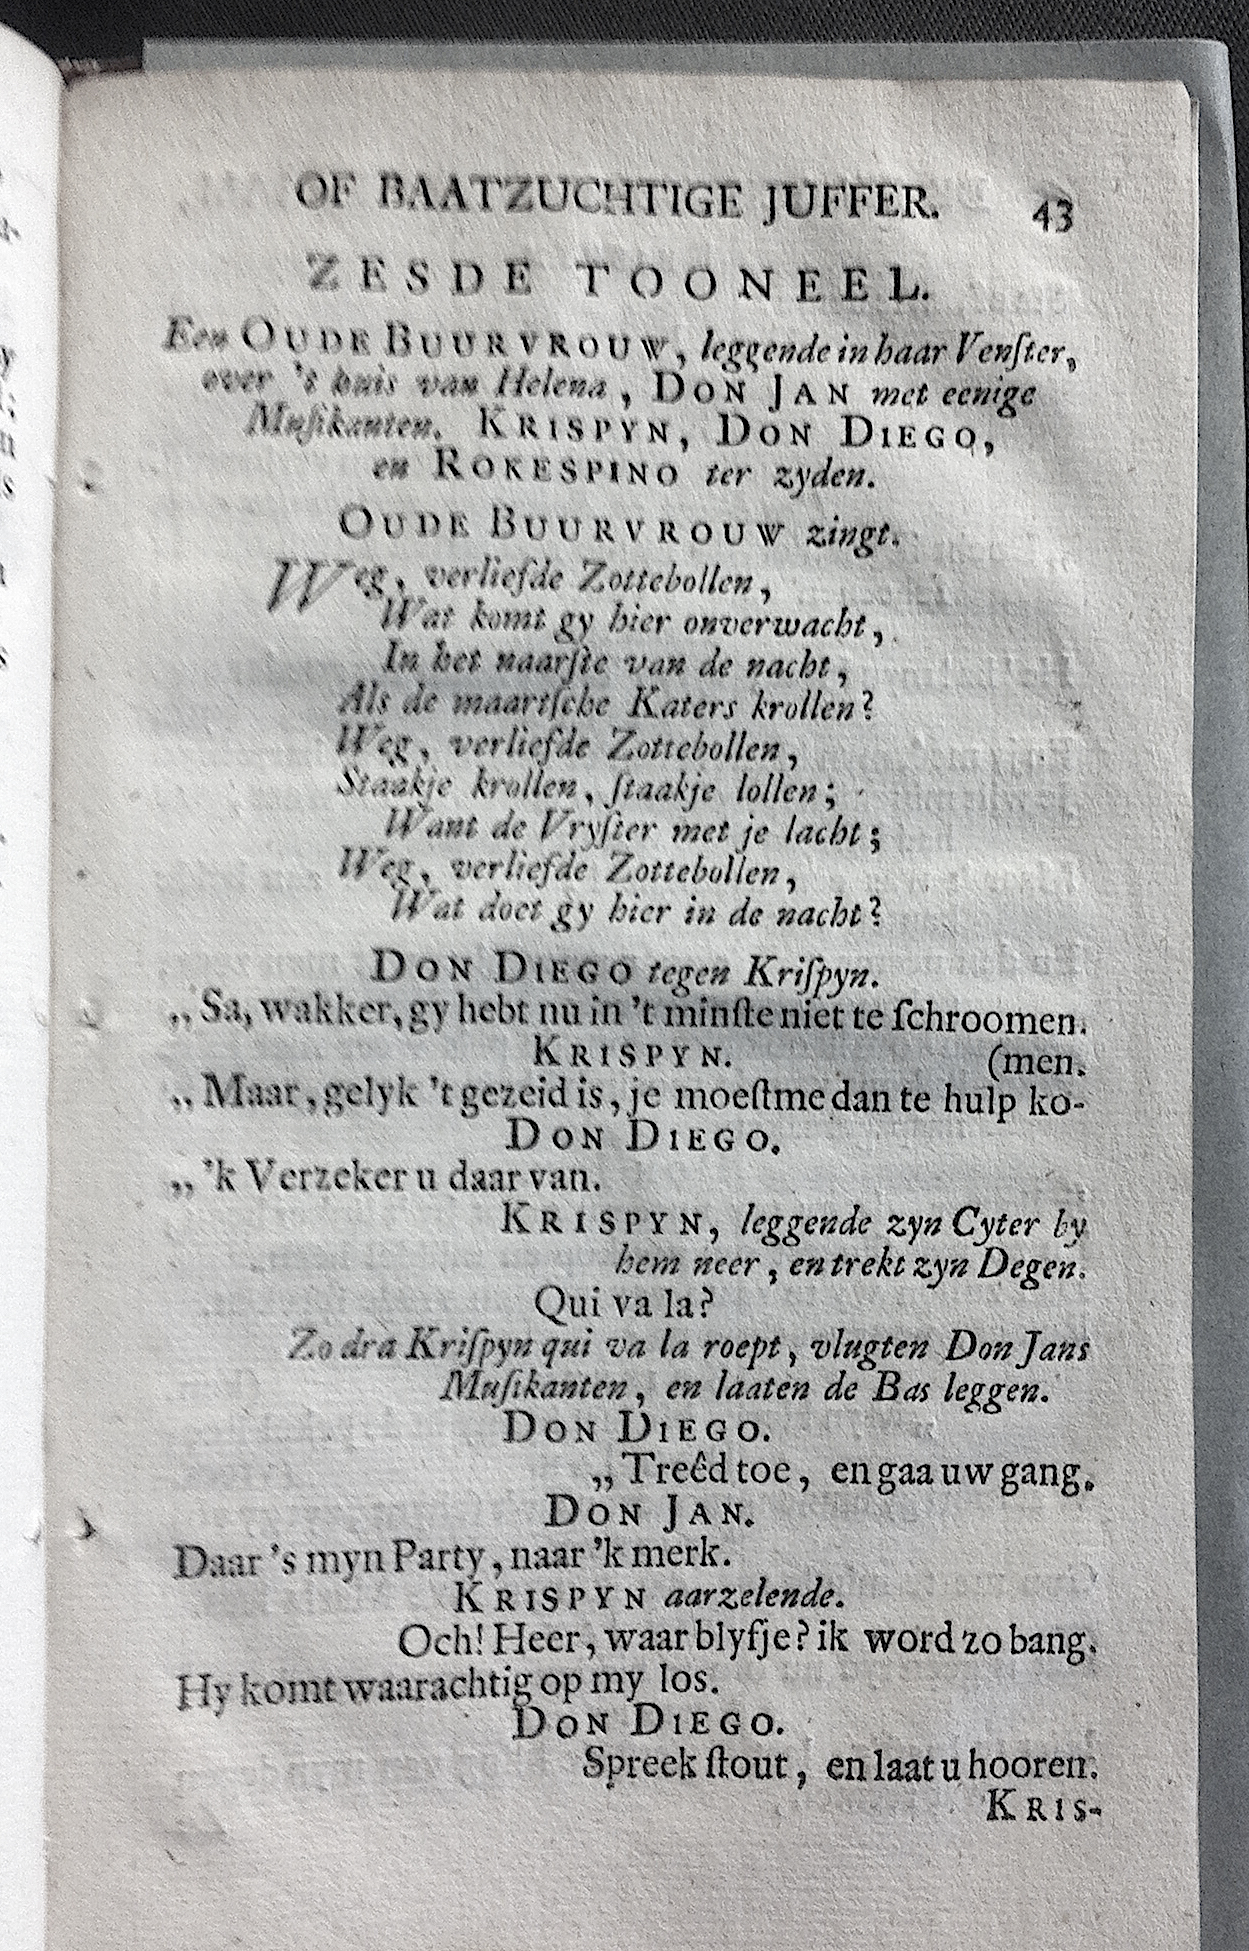 OF BAATZUCHTIGE JUFFER. 43
ZESDE TOONEEL.
Een OUDE BUURVROUW, leggende in haar Venſter,
over 's huis van Helena, DON JAN met eenige
Muſikanten. KRISPYN, DON DIEGO,
en ROKESPINO ter zyden.
OUDE BUURVROUW zingt.
Weg, verliefde Zottebollen,
Wat komt gy hier onverwacht,
In het naarſte van de nacht,
Als de maartſche Katers krollen?
Weg, verliefde Zottebollen,
Staakje krollen, ſtaakje lollen;
Want de Vryſter met je lacht;
Weg, verliefde Zottebollen,
Wat doet gy hier in de nacht?
DON DIEGO tegen Kriſpyn.
„Sa, wakker, gy hebt nu in 't minſte niet te ſchroomen.
KRISPYN. (men.
„Maar, gelyk 't gezeid is, je moeſtme dan te hulp ko-
DON DIEGO.
„'k Verzeker u daar van.
KRISPYN, leggende zyn Cyter by
hem neer, en trekt zyn Degen.
Qui va la?
Zo dra Kriſpyn qui va la roept, vlugten Don Jans
Muſikanten, en laaten de Bas leggen.
DON DIEGO.
„Treêd toe, en gaa uw gang.
DON JAN.
Daar 's myn Party, naar 'k merk.
KRISPYN aarzelende.
Och! Heer, waar blyfje? ik word zo bang.
Hy komt waarachtig op my los.
DON DIEGO.
Spreek ſtout, en laat u hooren.
KRIS-